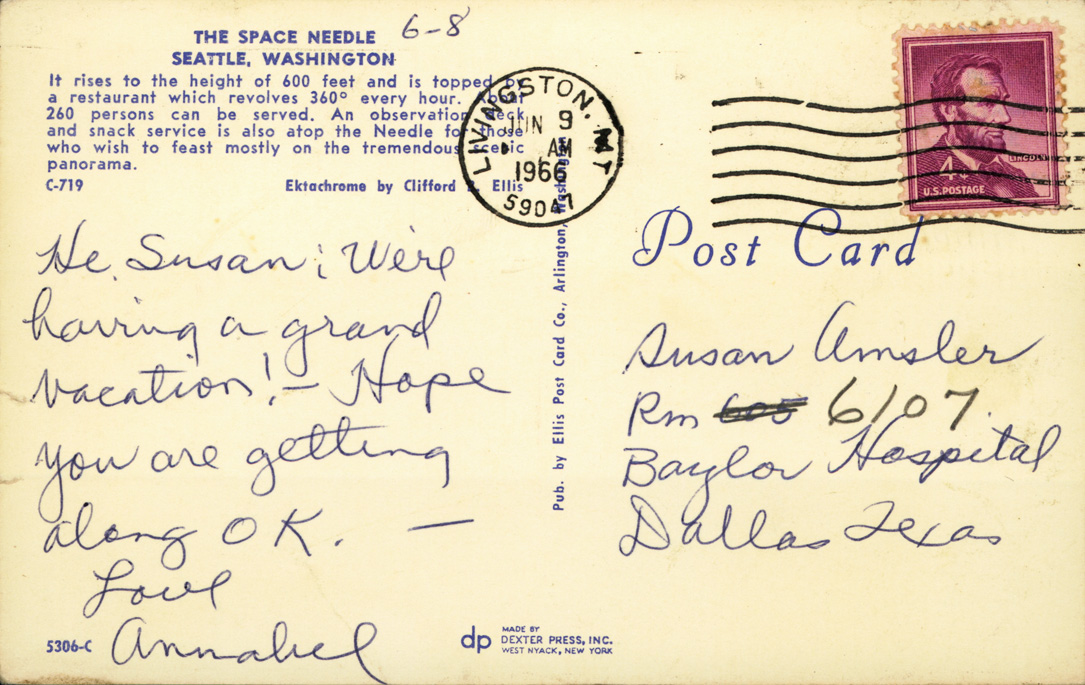 6-8
THE SPACE NEEDLE
SEATTLE, WASHINGTON
It rises to the height of 600 feet and is topped by
a restaurant which revolves 360° every hour. About
260 persons can be served. An observation deck
and snack service is also atop the Needle for those
who wish to feast mostly on the tremendous scenic
panorama.
C-719
Ektachrome by Clifford Ellis
LIVINGSTON, MT
JUN 9
AM
1966
59047
LINCOLN
4¢
U.S. POSTAGE
Post Card
He, Susan; We're
having a grand
vacation! – Hope
you are getting
along OK. —
Love
Annabel
Pub. by Ellis Post Card Co., Arlington, Washington
Susan Amsler
Rm 605 6107
Baylor Hospital
Dallas Texas
5306-C
dp
MADE BY
DEXTER PRESS, INC.
WEST NYACK, NEW YORK